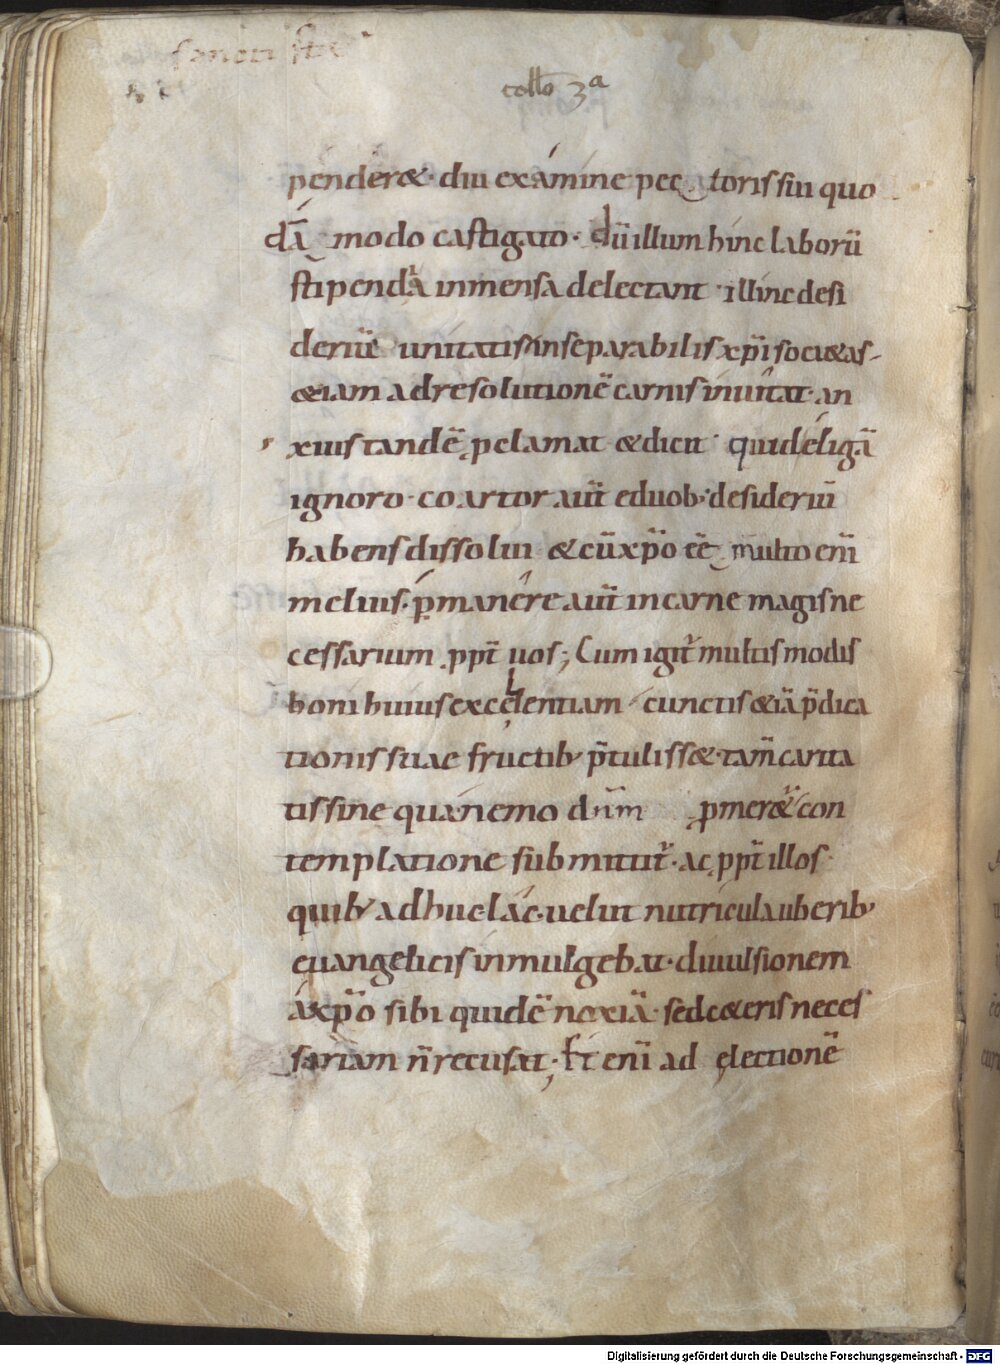 collo 3ª
penderæ· diu examine pectoris sui quo
dā modo castigato· dū illum hinc laborū
stipendia inmensa delectant· illinc desi
deriū unitatis inseparabilis xp̄i sociætas
ætiam ad resolutionē carnis inuitat· an
xius tandē p̱clamat &dicit· quid eligā
ignoro· coartor aūt eduob; desideriū
habens dissolui &cū xp̄o eē multo enī
melius· p̱manere aūt in carne magis ne
cessarium ppt̄ uos; Cum igit̄ multis modis
boni huius excęllentiam cunctis &iā p̄dica
tionis suae fructib; p̄tulissæ· tam̄ carita
tis sine qua nemo dn̄m p̱meræ& con
templatione submittit̄· ac ppt̄ illos·
quib; adhuc lác· uelut nutricula uberib;
euangelicis inmulgebat· diuulsionem
a xp̄o sibi quidē noxiā· sed c&eris neces
sariam n̄ recusat; fr̄t enī ad ęlectionē
Digitalisierung gefördert durch die Deutsche Forschungsgemeinschaft - DFG